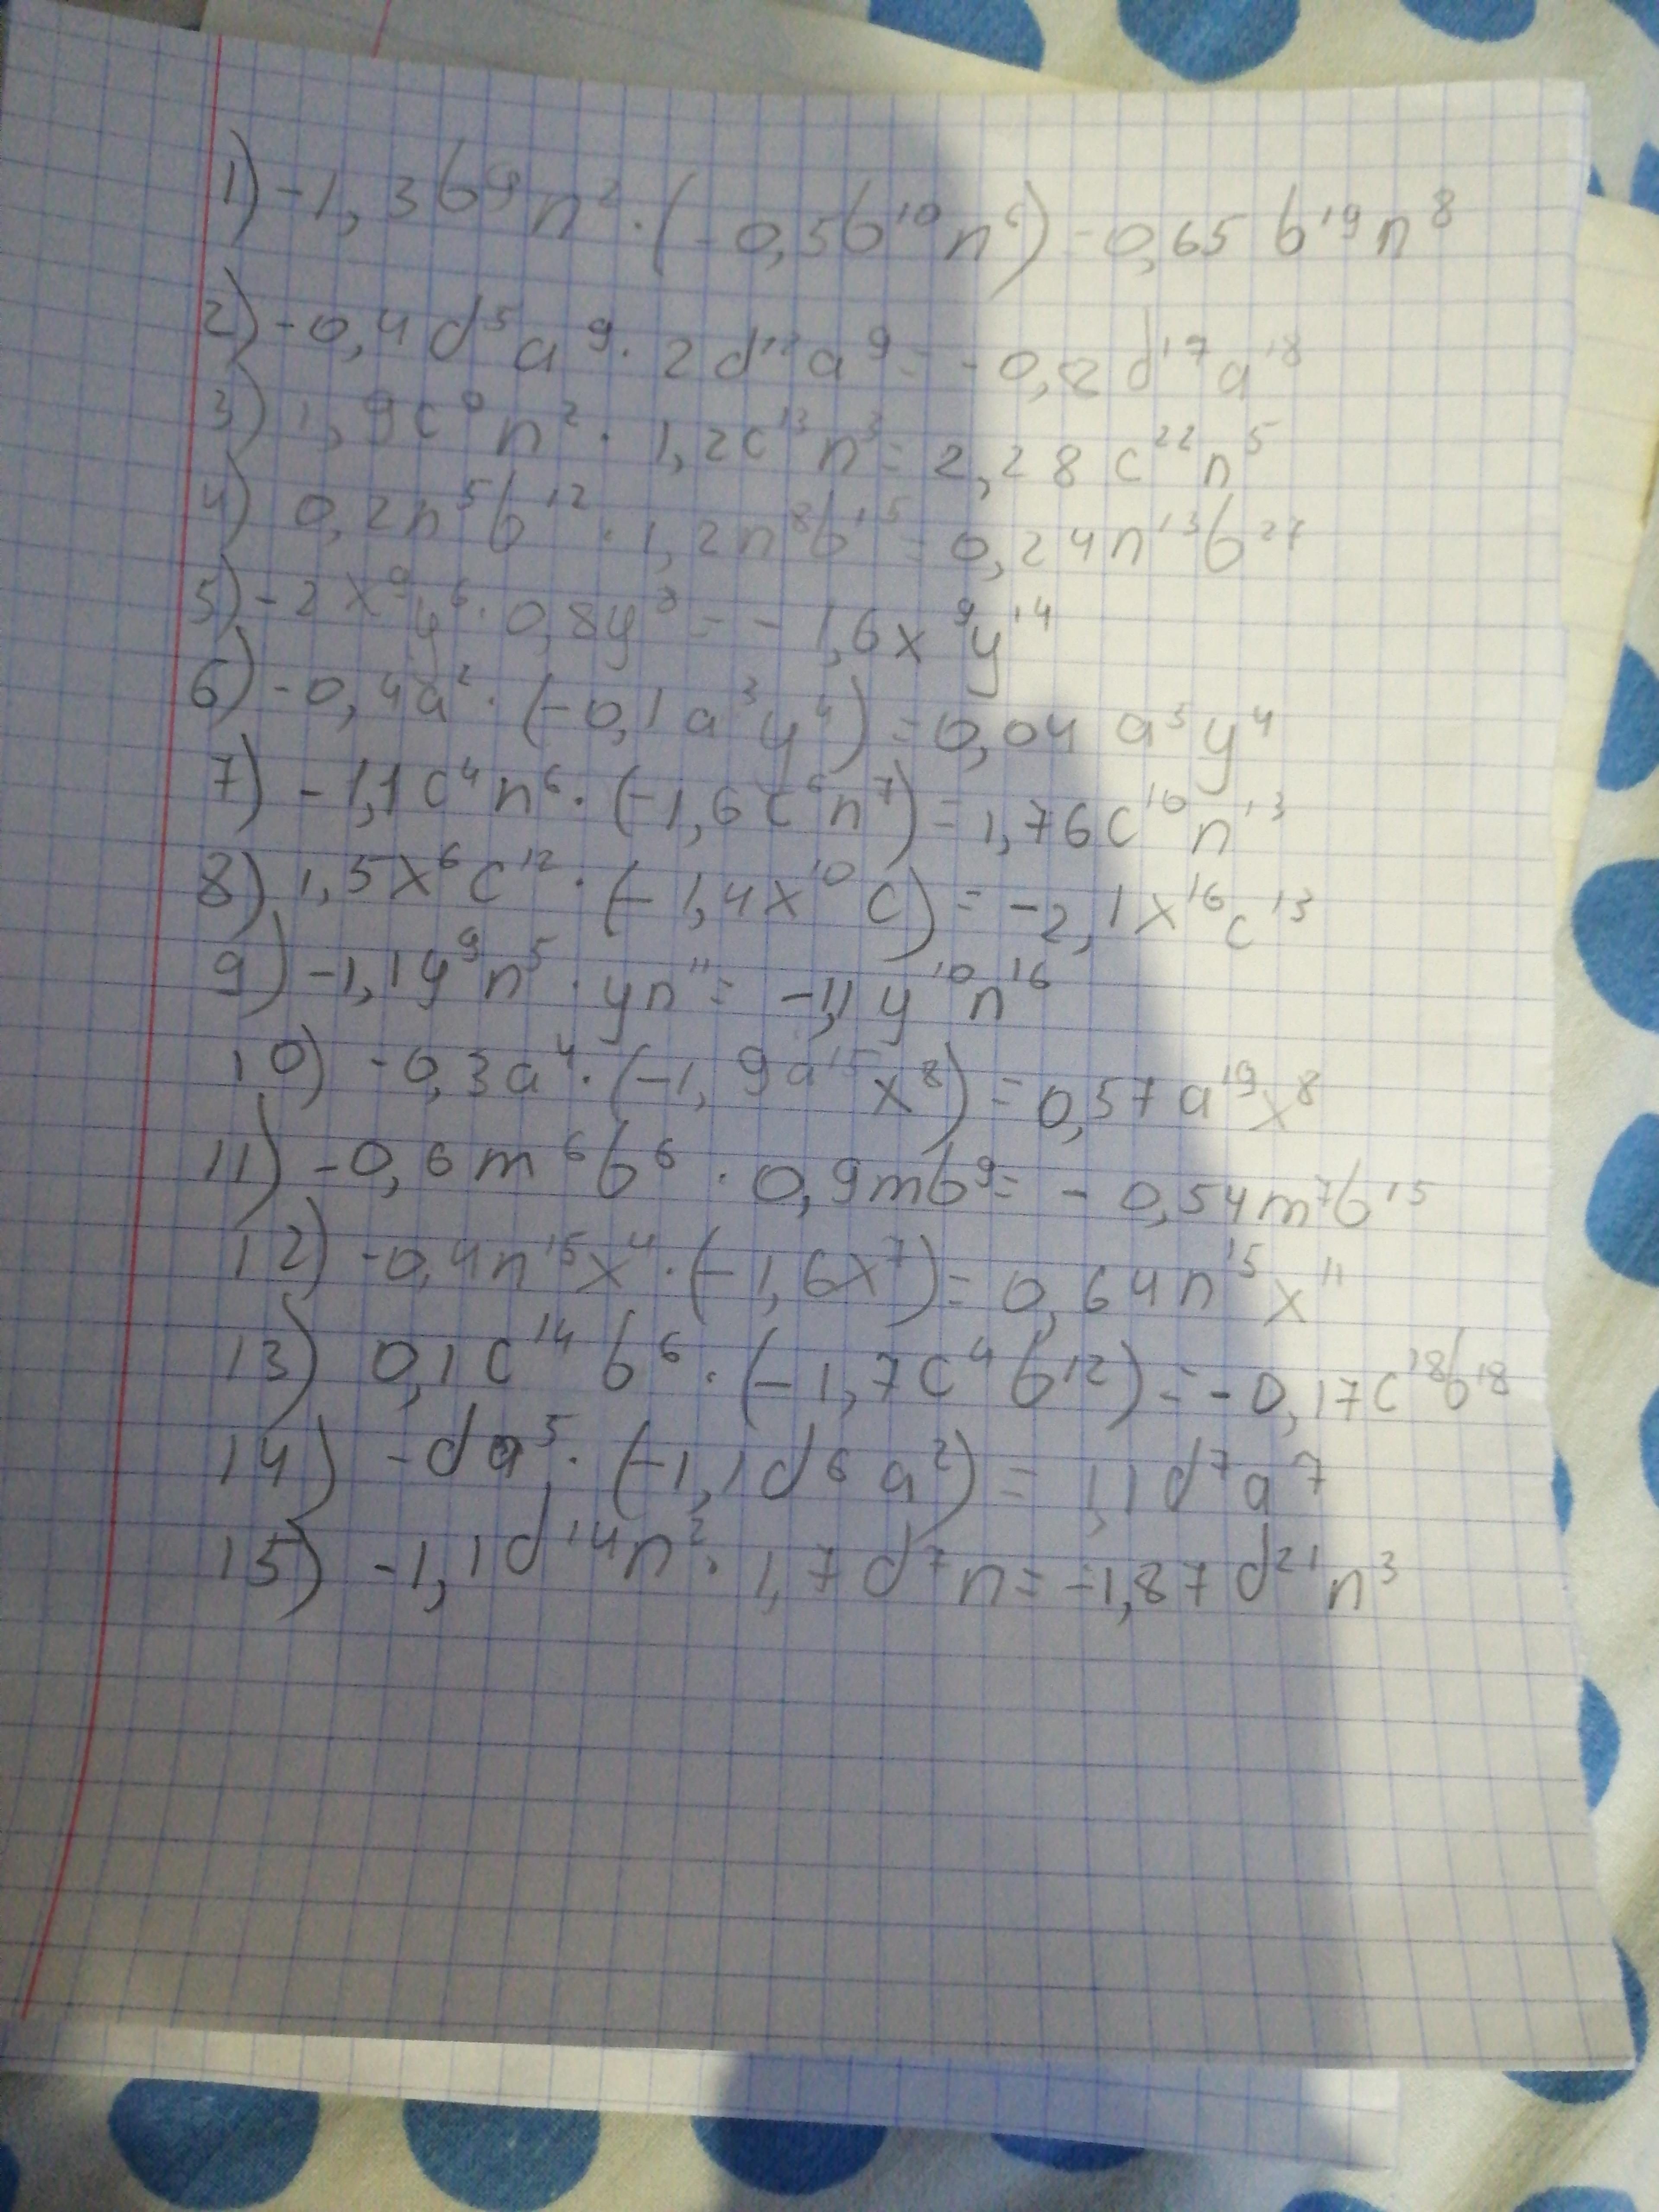 1) -1,3b⁹n²·(-0,5b¹⁰n⁶)=0,65b¹⁹n⁸
2) -0,4d⁵a⁹·2d¹²a⁹=-0,8d¹⁷a¹⁸
3) 1,9c⁹n²·1,2c¹³n³=2,28c²²n⁵
4) 0,2n⁵b¹²·1,2n⁸b¹⁵=0,24n¹³b²⁷
5) -2x⁹y⁶·0,8y⁸=-1,6x⁹y¹⁴
6) -0,4a²·(-0,1a³y⁴)=0,04a⁵y⁴
7) -1,1c⁴n⁶·(-1,6c⁶n⁷)=1,76c¹⁰n¹³
8) 1,5x⁶c¹²·(-1,4x¹⁰c)=-2,1x¹⁶c¹³
9) -1,1y⁹n⁵·yn¹¹=-1,1y¹⁰n¹⁶
10) -0,3a⁴·(-1,9a¹⁵x⁸)=0,57a¹⁹x⁸
11) -0,6m⁶b⁶·0,9mb⁹=-0,54m⁷b¹⁵
12) -0,4n¹⁵x⁴·(-1,6x⁷)=0,64n¹⁵x¹¹
13) 0,1c¹⁴b⁶·(-1,7c⁴b¹²)=-0,17c¹⁸b¹⁸
14) -da⁵·(-1,1d⁶a²)=1,1d⁷a⁷
15) -1,1d¹⁴n²·1,7d⁷n=-1,87d²¹n³